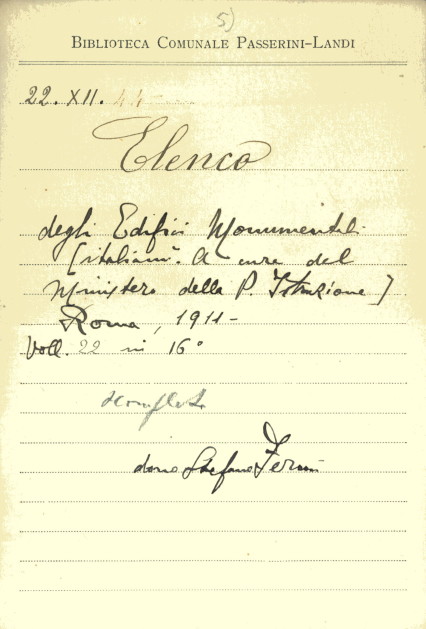 5)
BIBLIOTECA COMUNALE PASSERINI-LANDI
22. XII. 44
Elenco
degli Edifici Monumentali
[italiani. A cura del
Ministero della P. Istruzione]
Roma, 1911-
Voll. 22 in 16°
dono Stefano Fermi